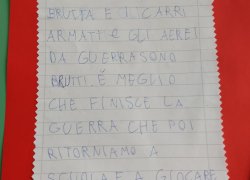 BRUTTA E I CARRI
ARMATI e GLI AEREI
DA GUERRA SONO
BRUTTI. È MEGLIO
CHE FINISCE LA
GUERRA CHE POI
RITORNIAMO A
SCUOLA E A GIOCARE